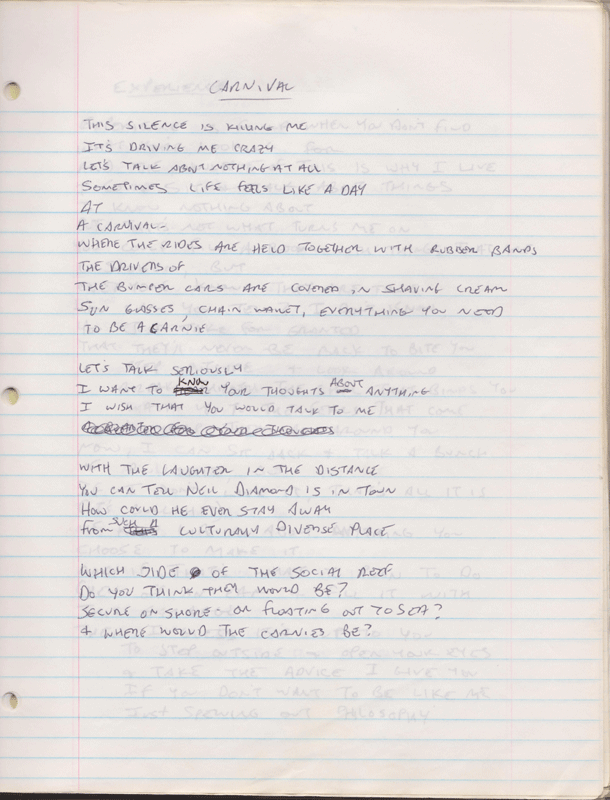 CARNIVAL
THIS SILENCE IS KILLING ME
IT'S DRIVING ME CRAZY
LET'S TALK ABOUT NOTHING AT ALL
SOMETIMES LIFE FEELS LIKE A DAY
AT
A CARNIVAL-
WHERE THE RIDES ARE HELD TOGETHER WITH RUBBER BANDS
THE DRIVERS OF
THE BUMPER CARS ARE COVERED IN SHAVING CREAM
SUN GLASSES, CHAIN WALLET, EVERYTHING YOU NEED
TO BE A CARNIE
LET'S TALK SERIOUSLY
I WANT TO KNOW YOUR THOUGHTS ABOUT ANYTHING
I WISH THAT YOU WOULD TALK TO ME
WITH THE LAUGHTER IN THE DISTANCE
YOU CAN TELL NEIL DIAMOND IS IN TOWN
HOW COULD HE EVER STAY AWAY
FROM SUCH A CULTURALLY DIVERSE PLACE
WHICH SIDE OF THE SOCIAL REEF
DO YOU THINK THEY WOULD BE?
SECURE ON SHORE- OR FLOATING OUT TO SEA?
& WHERE WOULD THE CARNIES BE?
TO STOP OUTSIDE & OPEN YOUR EYES
& TAKE THE ADVICE I GIVE YOU
IF YOU DON'T WANT TO BE LIKE ME
JUST SPEWING OUT PHILOSOPHY